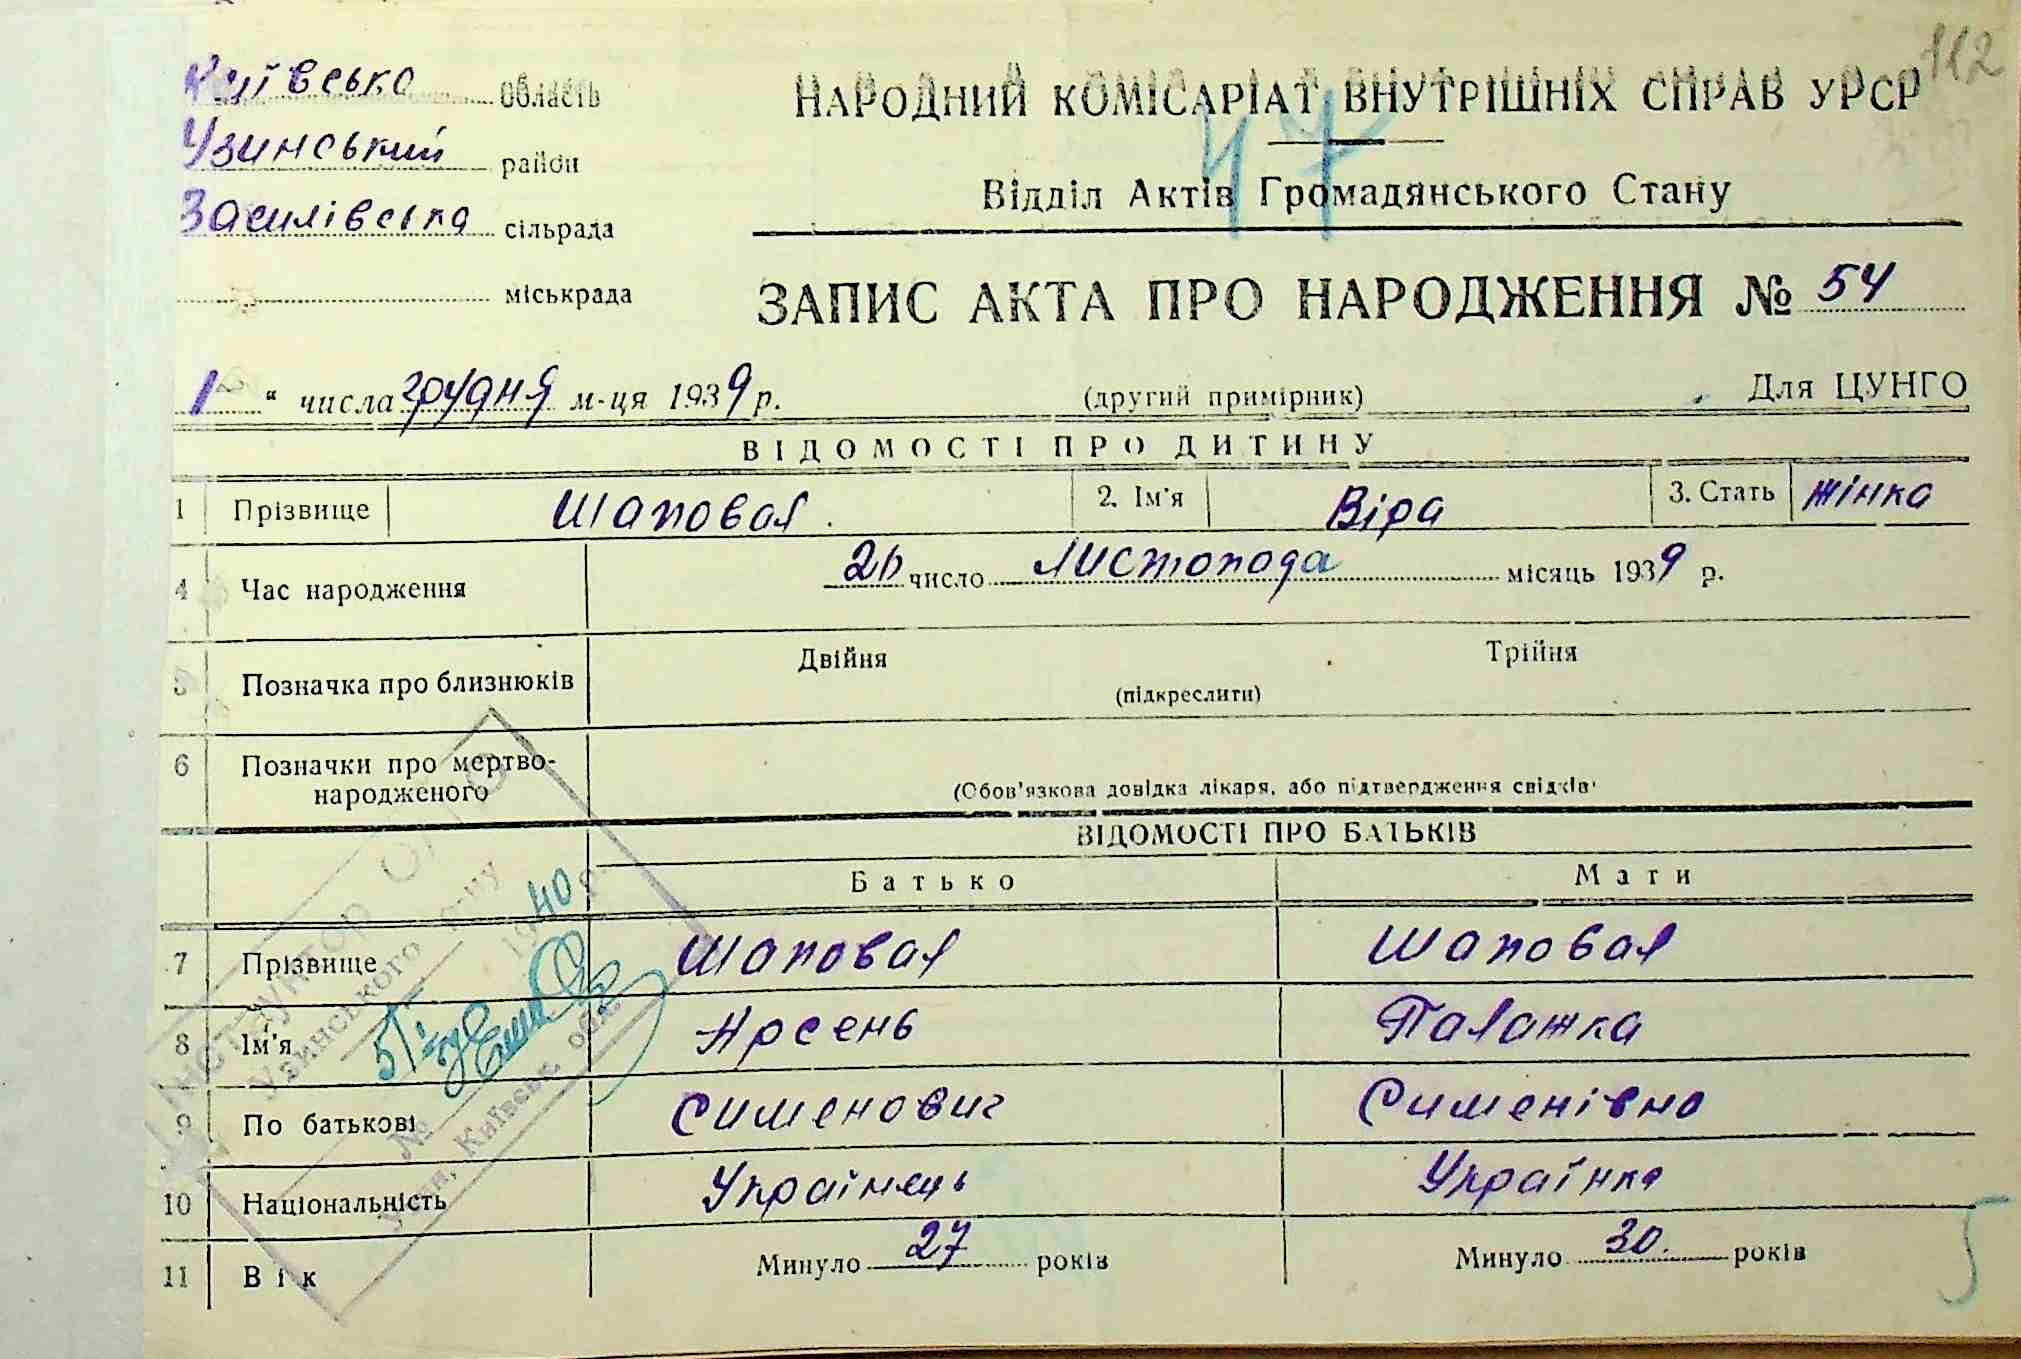 Київська область
Узинський район
Василівська сільрада
міськрада
112
НАРОДНИЙ КОМІСАРІАТ ВНУТРІШНІХ СПРАВ УРСР
47
Відділ Актів Громадянського Стану
ЗАПИС АКТА ПРО НАРОДЖЕННЯ № 54
1 " числа грудня м-ця 1939 р. (другий примірник) Для ЦУНГО
ВІДОМОСТІ ПРО ДИТИНУ
1 Прізвище Шаповал. 2. Ім'я Віра 3. Стать жінка
4 Час народження 26 число Листопада місяць 1939 р.
5 Позначка про близнюків Двійня Трійня
(підкреслити)
6 Позначки про мертво-
народженого (Обов'язкова довідка лікаря, або підтвердження свідків)
ВІДОМОСТІ ПРО БАТЬКІВ
Батько Мати
7 Прізвище Шаповал Шаповал
8 Ім'я Арсень Палажка
9 По батькові Сименович Сименівна
10 Національність Українець Українка
11 Вік Минуло 27 років Минуло 30. років
Інструктор
Узинського р-ну
№ 1940 р.
Узин, Київськ. обл.
5